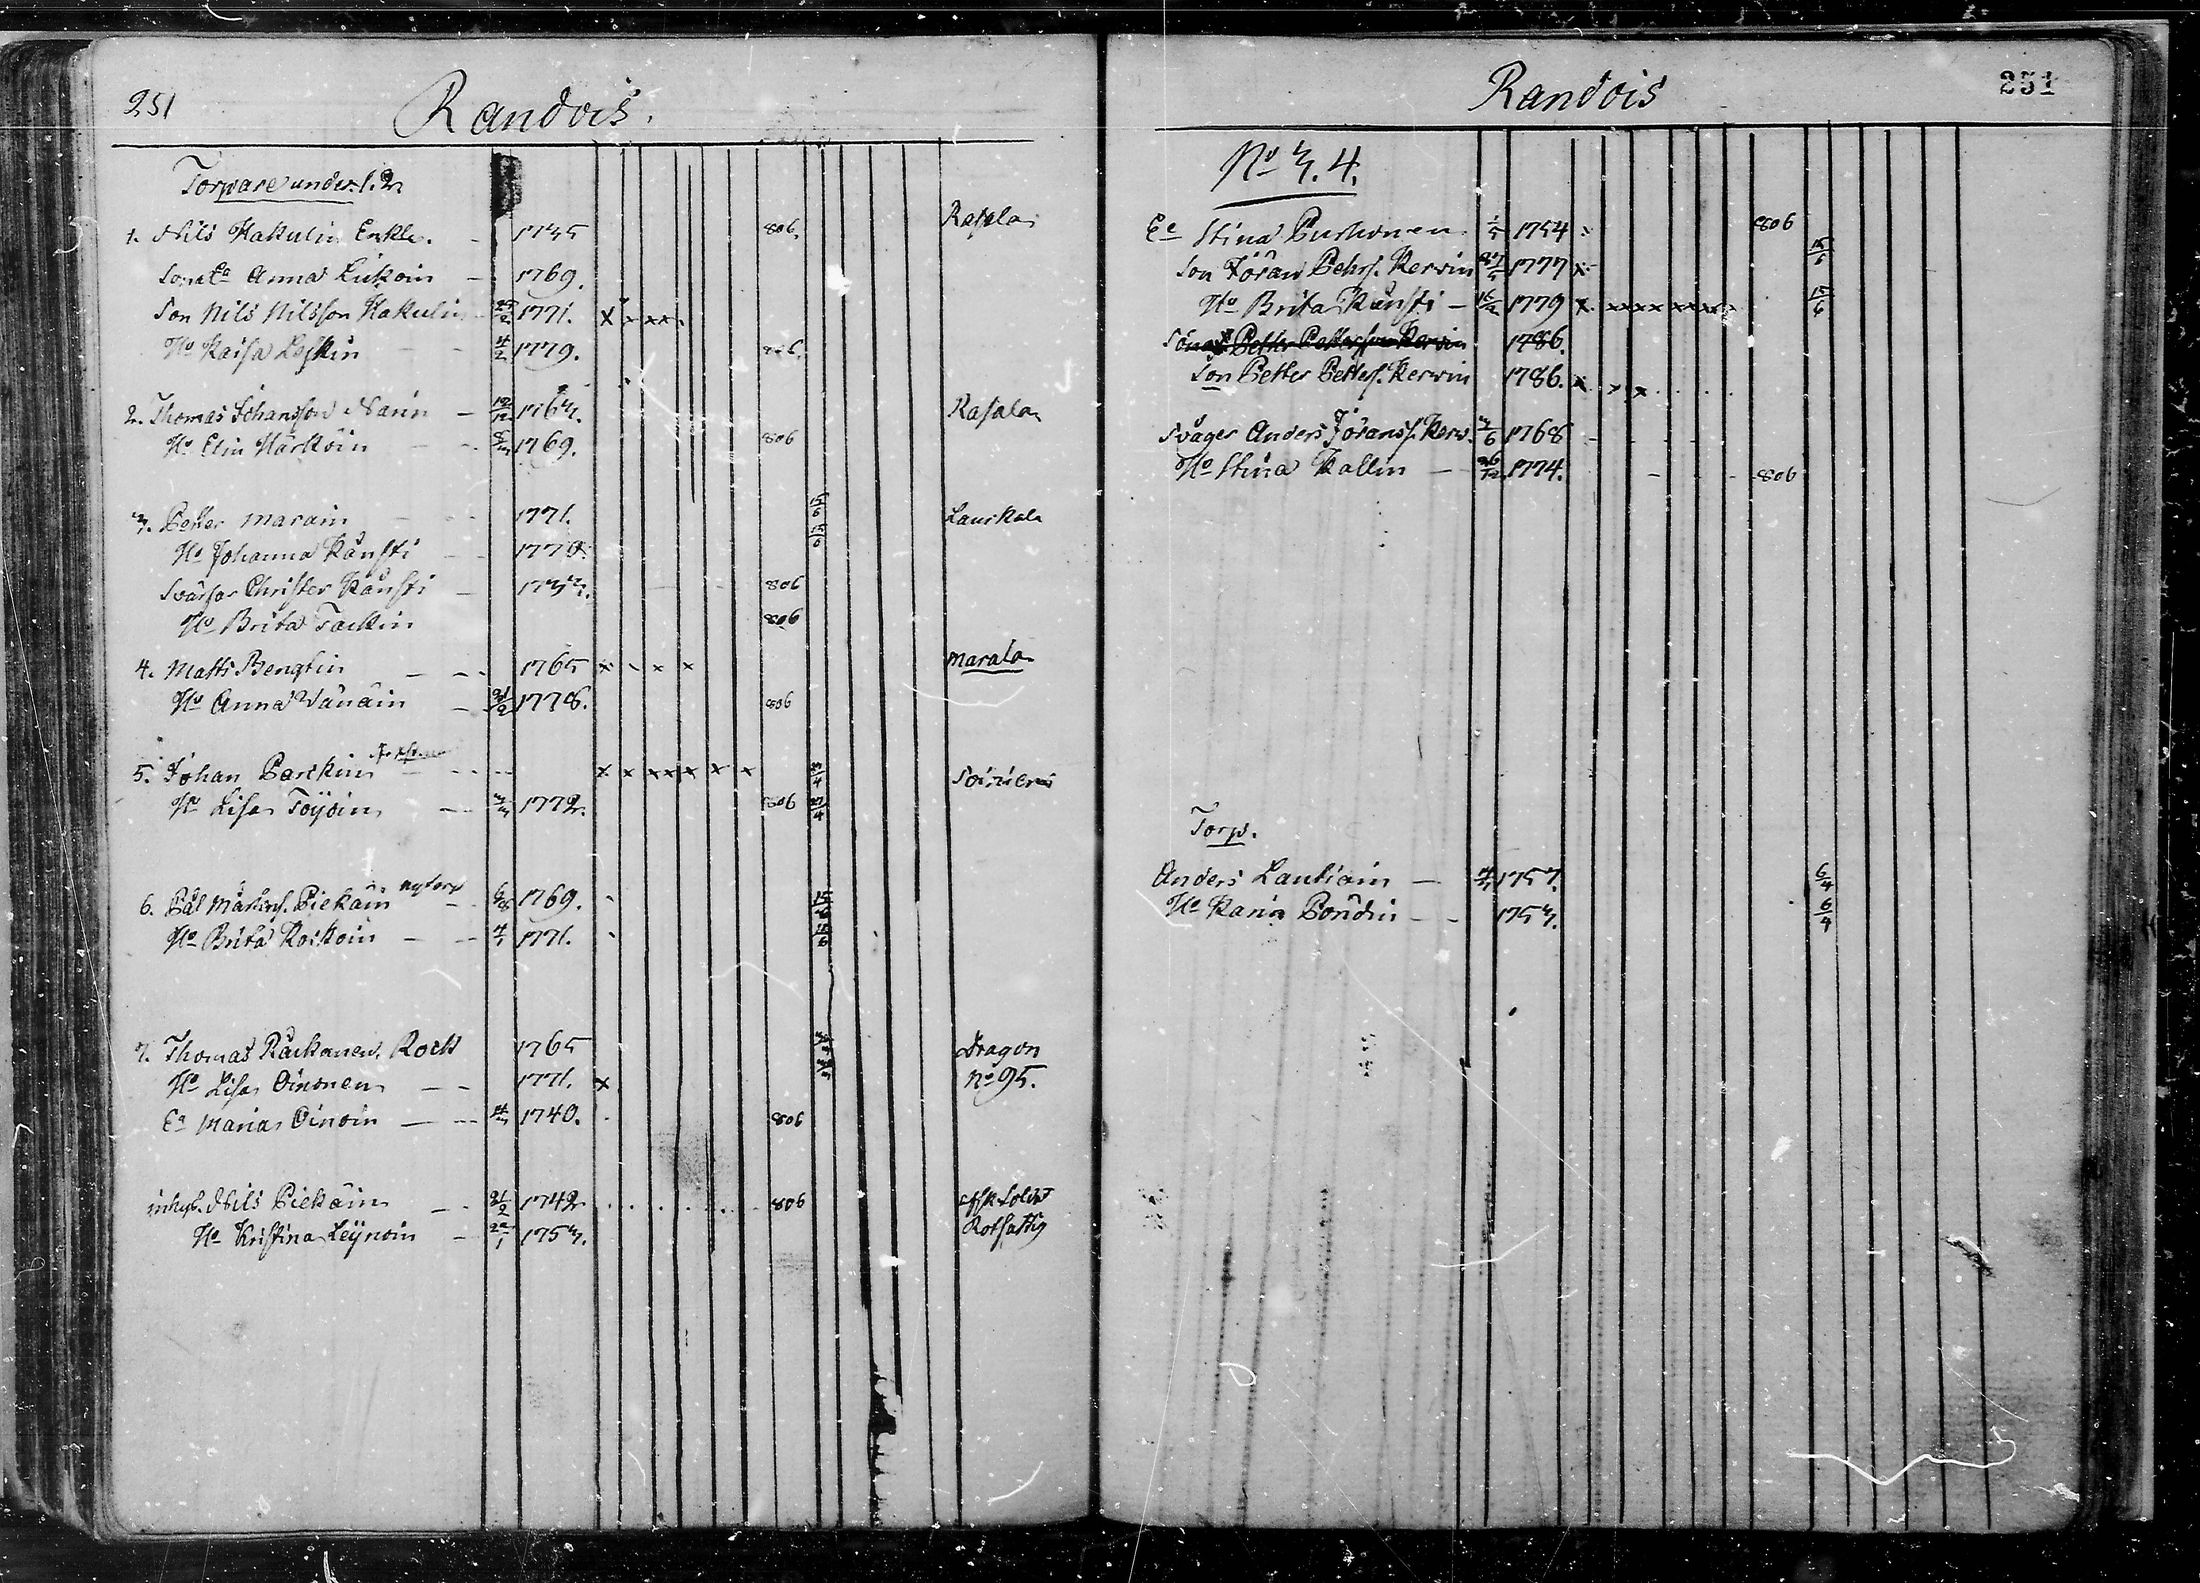 251
Randois.
Torpare under 1.2.
1. Nils Kakulin Enkl. 1735 806. Rasala
Son Ea Anna Luikoin 1769.
Son Nils Nilsson Kakulin 1771. x x xx
Ho Kaisa Laskin 4/2 1779. 806.
2. Thomas Johansson Narin 12/12 1763. Rasala
Ho Elin Härköin 1769. 806
3. Petter Marain 1771. 15/6 Laurkala
Ho Johanna Känsti 1770. 15/6
Svärfar Christer Känsti 1733. 806
Ho Brita Tackin 806
4. Matts Bengtin 1765 x x x Marala
Ho Anna Vänäin 21/2 1778. 806
5. Johan Parikin x x xx x x x 13/4 Soiniemi
Ho Lisa Töyöin 3/3 1772. 806 27/4
6. Pål Mårtens. Piekäin nytorp 6/8 1769.
Ho Brita Koikoin 4/1 1771.
7. Thomas Räckänen, Rock 1765 Dragon
Ho Lisa Oinonen 1771. x No 95.
Ea Maria Oinoin 4/3 1740. 806
inhys. Nils Piekäin 21/2 1742 806 afsk Soldat
Ho Kristina Leynoin 22/1 1753. Rotfattig
Randois
251
No 3.4.
Ea Stina Purhonen 1/5 1754 806
Son Jöran Pehrs. Kerwin 27/5 1777 x 15/6
Ho Brita Känsti 16/12 1779 x xxxx xxxxx 15/6
1786.
Son Petter Petters. Kerwin 1786. x x x
Svåger Anders Jöranss. Kerw. 3/6 1768
Ho Stina Kallin 26/12 1774. 806
Torp.
Anders Lautiain 4/3 1757. 6/4
Ho Karin Pöndin 1753. 6/4